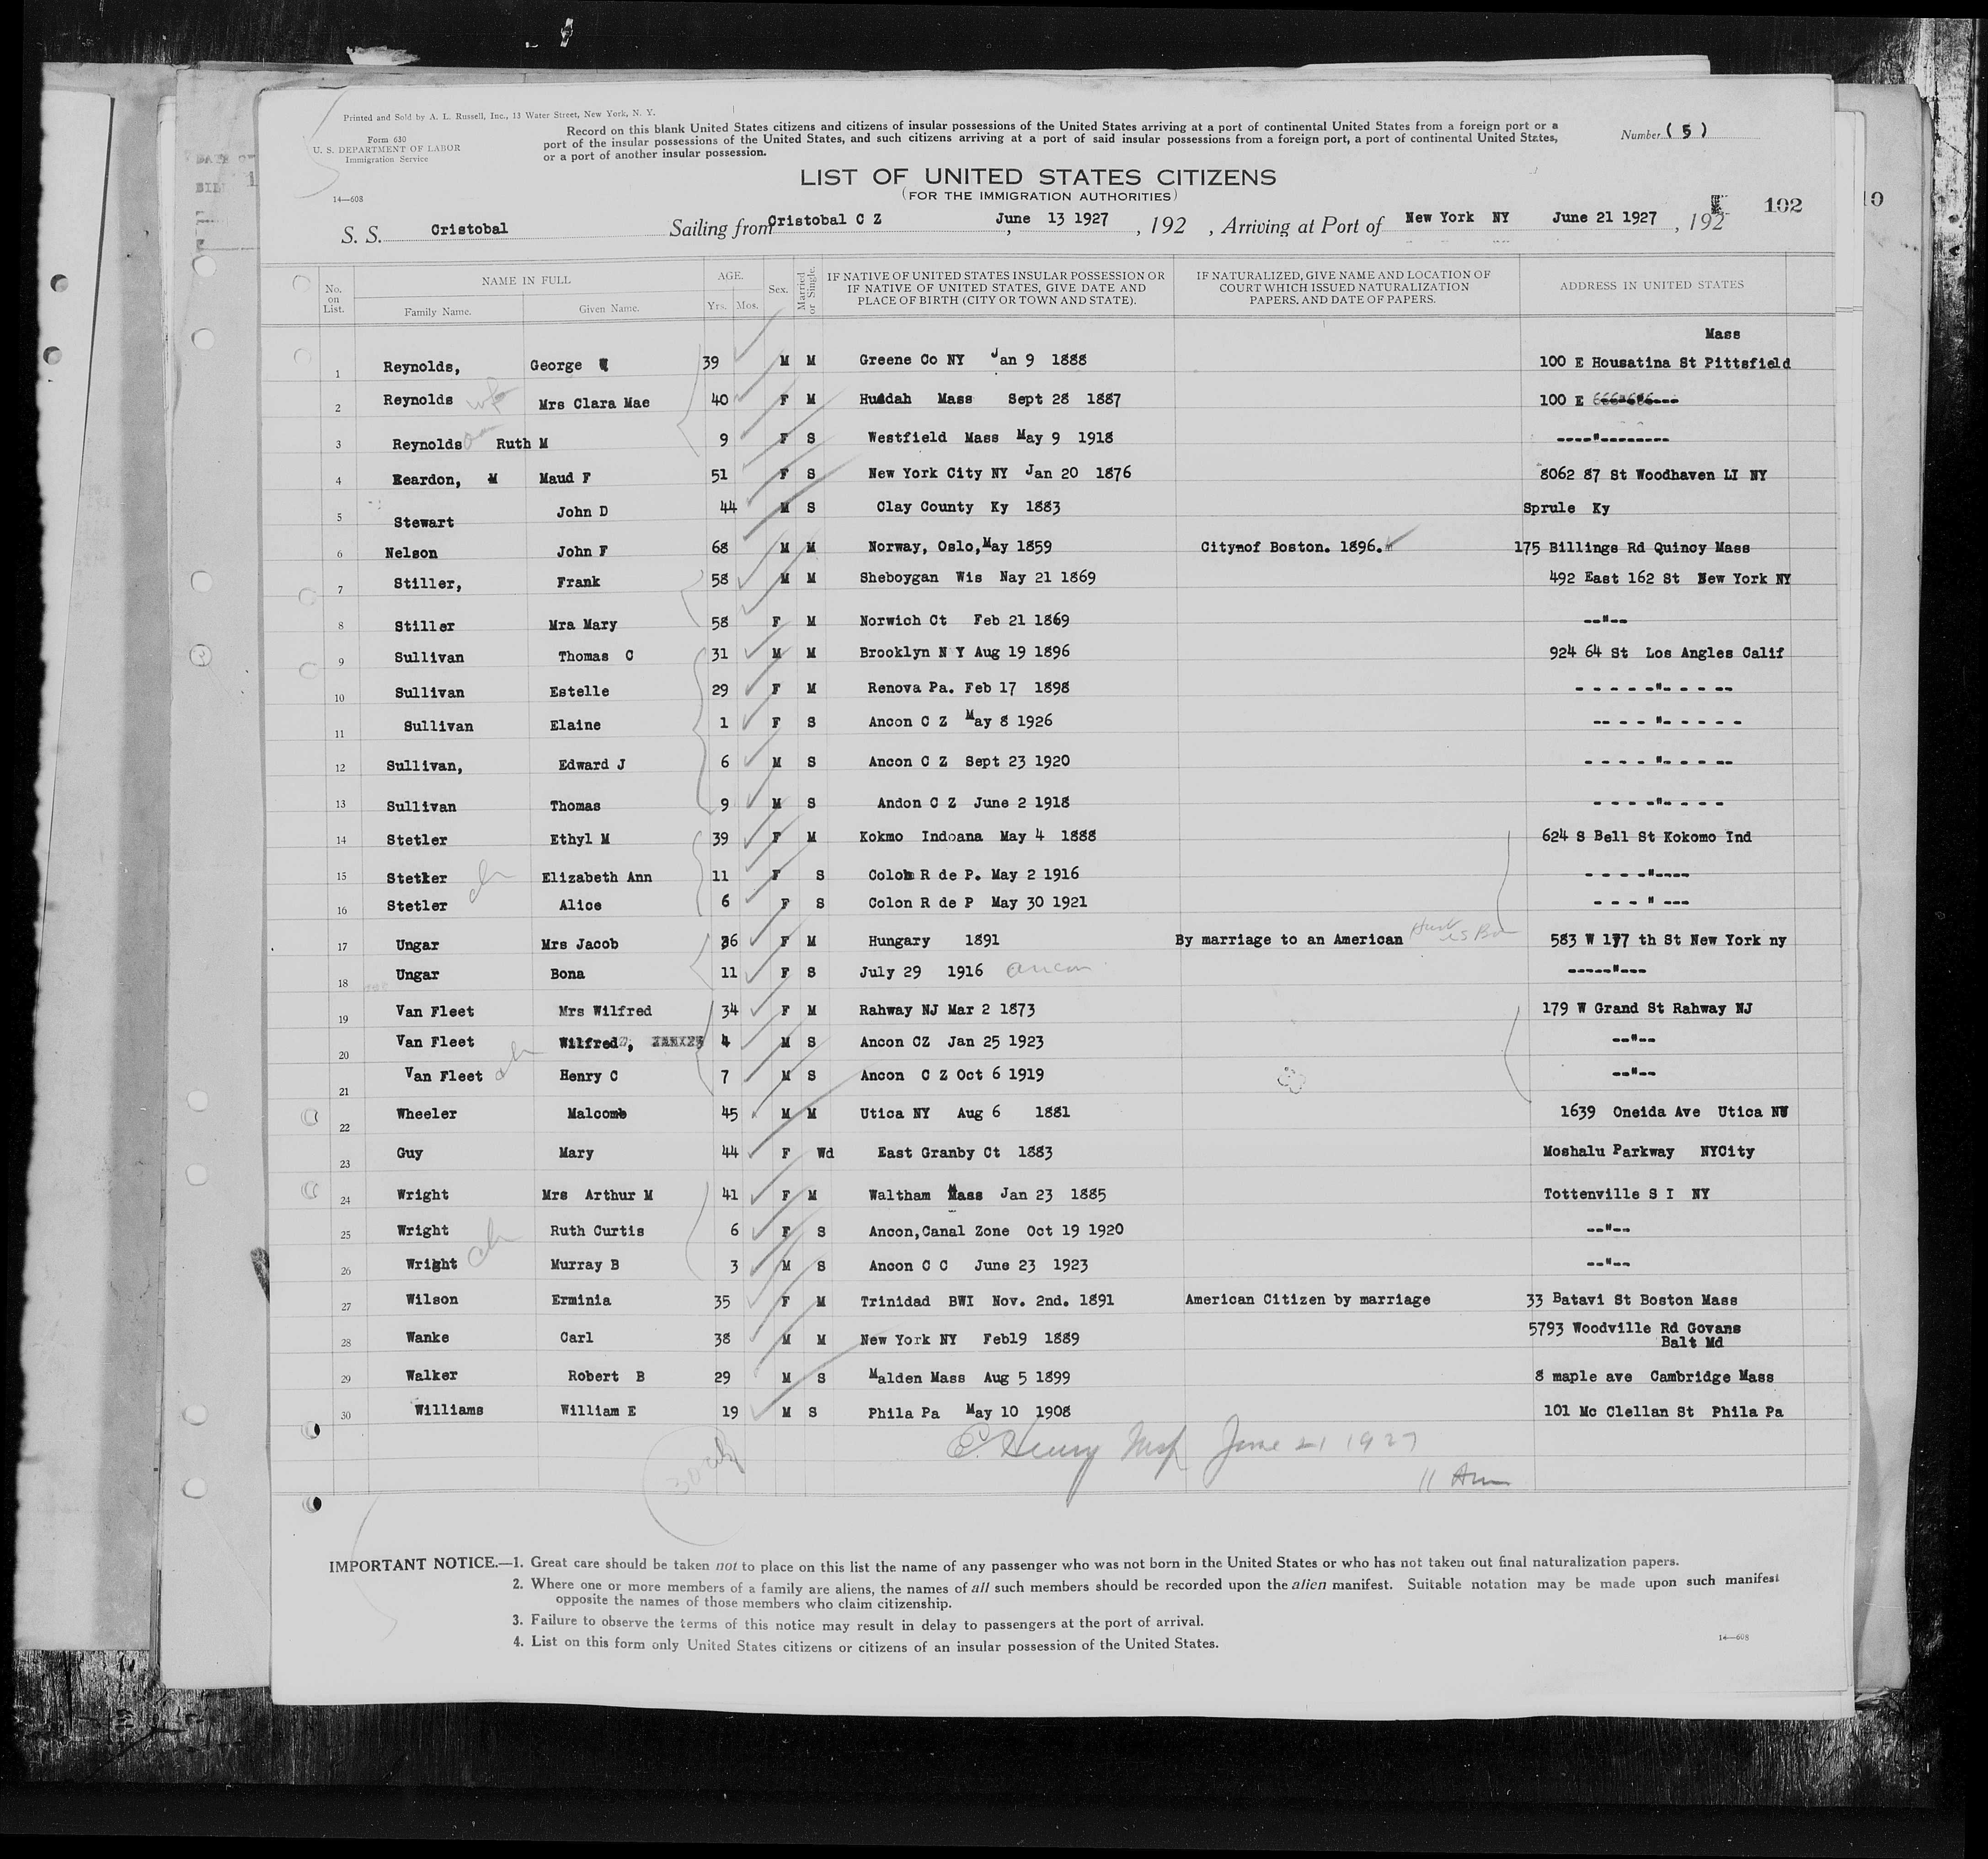 Printed and Sold by A. L. Russell, Inc., 13 Water Street, New York, N. Y.
Form 630
U. S. DEPARTMENT OF LABOR
Immigration Service
14—608
Record on this blank United States citizens and citizens of insular possessions of the United States arriving at a port of continental United States from a foreign port or a
port of the insular possessions of the United States, and such citizens arriving at a port of said insular possessions from a foreign port, a port of continental United States,
or a port of another insular possession.
Number ( 5 )
LIST OF UNITED STATES CITIZENS
(FOR THE IMMIGRATION AUTHORITIES)
102
S. S. Cristobal Sailing from Cristobal C Z June 13 1927, 192 , Arriving at Port of New York NY June 21 1927, 192
No. on List. NAME IN FULL Family Name. Given Name. AGE. Yrs. Mos. Sex. Married or Single. IF NATIVE OF UNITED STATES INSULAR POSSESSION OR IF NATIVE OF UNITED STATES, GIVE DATE AND PLACE OF BIRTH (CITY OR TOWN AND STATE). IF NATURALIZED, GIVE NAME AND LOCATION OF COURT WHICH ISSUED NATURALIZATION PAPERS, AND DATE OF PAPERS. ADDRESS IN UNITED STATES
Mass
1 Reynolds, George W 39 M M Greene Co NY Jan 9 1888 100 E Housatina St Pittsfield
2 Reynolds wf Mrs Clara Mae 40 F M Huddah Mass Sept 28 1887 100 E
3 Reynolds Ruth M 9 F S Westfield Mass May 9 1918 ----"--------
4 Reardon, M Maud F 51 F S New York City NY Jan 20 1876 8062 87 St Woodhaven LI NY
5 Stewart John D 44 M S Clay County Ky 1883 Sprule Ky
6 Nelson John F 68 M M Norway, Oslo, May 1859 City-of Boston. 1896. 175 Billings Rd Quincy Mass
7 Stiller, Frank 58 M M Sheboygan Wis Nay 21 1869 492 East 162 St New York NY
8 Stiller Mra Mary 58 F M Norwich Ct Feb 21 1869 --"--
9 Sullivan Thomas C 31 M M Brooklyn N Y Aug 19 1896 924 64 St Los Angles Calif
10 Sullivan Estelle 29 F M Renova Pa. Feb 17 1898 - - - - -"- - - --
11 Sullivan Elaine 1 F S Ancon C Z May 8 1926 -- - - - "- - - - -
12 Sullivan, Edward J 6 M S Ancon C Z Sept 23 1920 - - - - -"- - - --
13 Sullivan Thomas 9 M S Andon C Z June 2 1918 - - - - -"- - - -
14 Stetler Ethyl M 39 F M Kokmo Indoana May 4 1888 624 S Bell St Kokomo Ind
15 Stetler ch Elizabeth Ann 11 F S Colon R de P. May 2 1916 - - - - -"----
16 Stetler Alice 6 F S Colon R de P May 30 1921 - - - - " ---
17 Ungar Mrs Jacob 36 F M Hungary 1891 By marriage to an American 583 W 177 th St New York ny
18 Ungar Bona 11 F S July 29 1916 ancon -----"---
19 Van Fleet Mrs Wilfred 34 F M Rahway NJ Mar 2 1873 179 W Grand St Rahway NJ
20 Van Fleet Wilfred, 4 M S Ancon CZ Jan 25 1923 --"--
21 Van Fleet ch Henry C 7 M S Ancon C Z Oct 6 1919 --"--
22 Wheeler Malcomb 45 M M Utica NY Aug 6 1881 1639 Oneida Ave Utica NY
23 Guy Mary 44 F Wd East Granby Ct 1883 Moshalu Parkway NYCity
24 Wright Mrs Arthur M 41 F M Waltham Mass Jan 23 1885 Tottenville S I NY
25 Wright Ruth Curtis 6 F S Ancon,Canal Zone Oct 19 1920 --"--
26 Wright ch Murray B 3 M S Ancon C C June 23 1923 --"--
27 Wilson Erminia 35 F M Trinidad BWI Nov. 2nd. 1891 American Citizen by marriage 33 Batavi St Boston Mass
28 Wanke Carl 38 M M New York NY Feb19 1889 5793 Woodville Rd Govans
Balt Md
29 Walker Robert B 29 M S Malden Mass Aug 5 1899 8 maple ave Cambridge Mass
30 Williams William E 19 M S Phila Pa May 10 1908 101 Mc Clellan St Phila Pa
Henry June 21 1927
11 Am
IMPORTANT NOTICE.—1. Great care should be taken not to place on this list the name of any passenger who was not born in the United States or who has not taken out final naturalization papers.
2. Where one or more members of a family are aliens, the names of all such members should be recorded upon the alien manifest. Suitable notation may be made upon such manifest
opposite the names of those members who claim citizenship.
3. Failure to observe the terms of this notice may result in delay to passengers at the port of arrival.
4. List on this form only United States citizens or citizens of an insular possession of the United States.
14—608